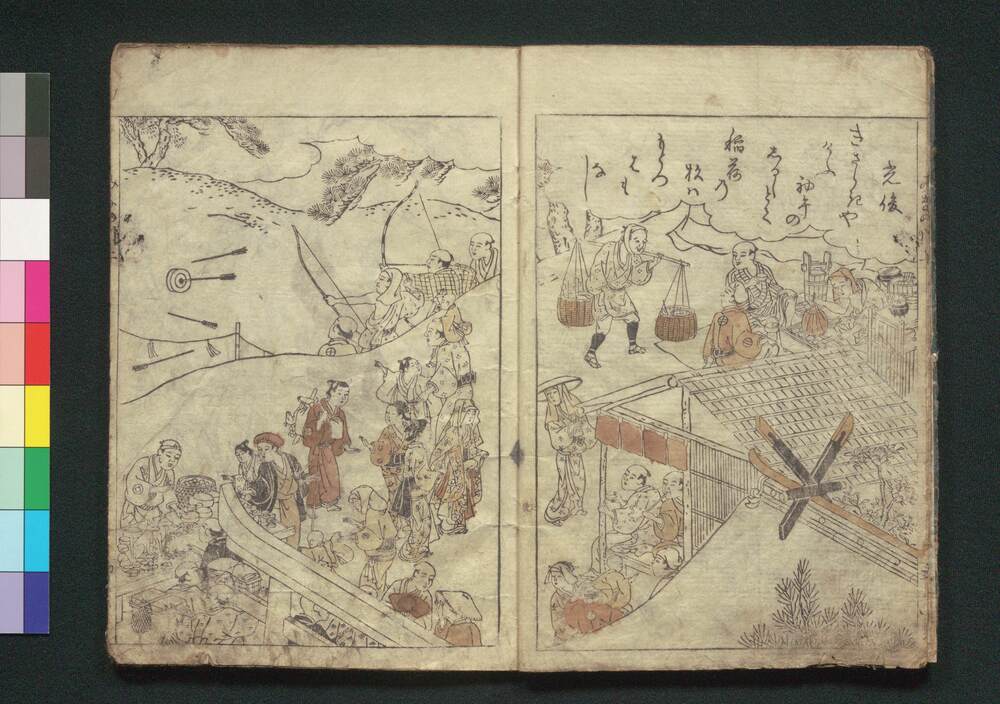 光俊
きさらきや
けふ
初午の
しるしとて
稲荷の
杦ハ
もとつ
はも
なし